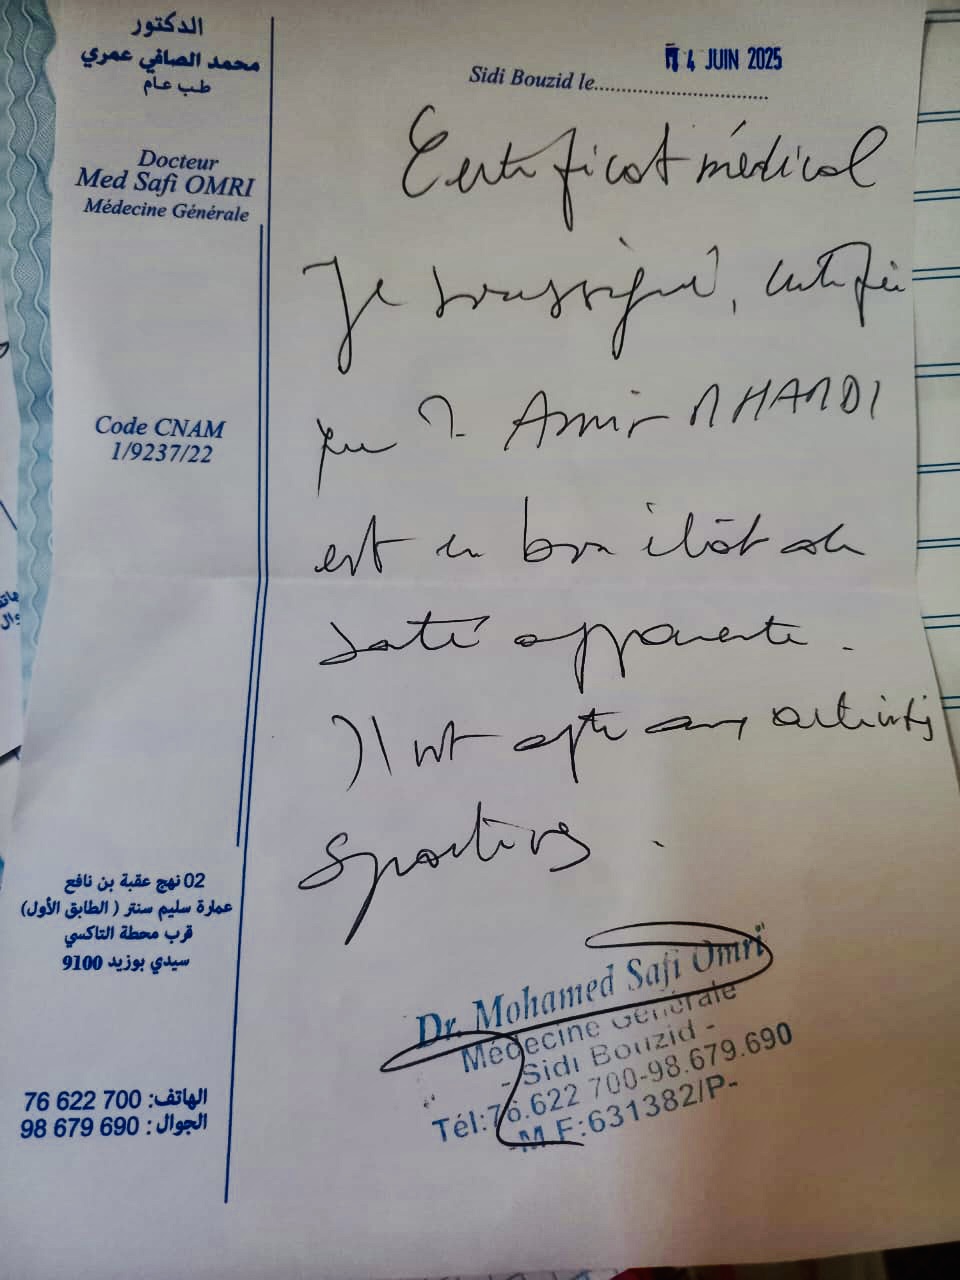 الدكتور
محمد الصافي عمري
طب عام
Docteur
Med Safi OMRI
Médecine Générale
Code CNAM
1/9237/22
02 نهج عقبة بن نافع
عمارة سليم سنتر ( الطابق الأول)
قرب محطة التاكسي
سيدي بوزيد 9100
الهاتف: 700 622 76
الجوال : 690 679 98
Sidi Bouzid le
4 JUIN 2025
Certificat médical
Je soussigné, certifie
que Amir
est en bon état de
santé apparente.
Il est apte aux activités
sportives.
Dr. Mohamed Safi Omri
Médecine Générale
- Sidi Bouzid -
Tél:76.622 700-98.679.690
M.F:631382/P-